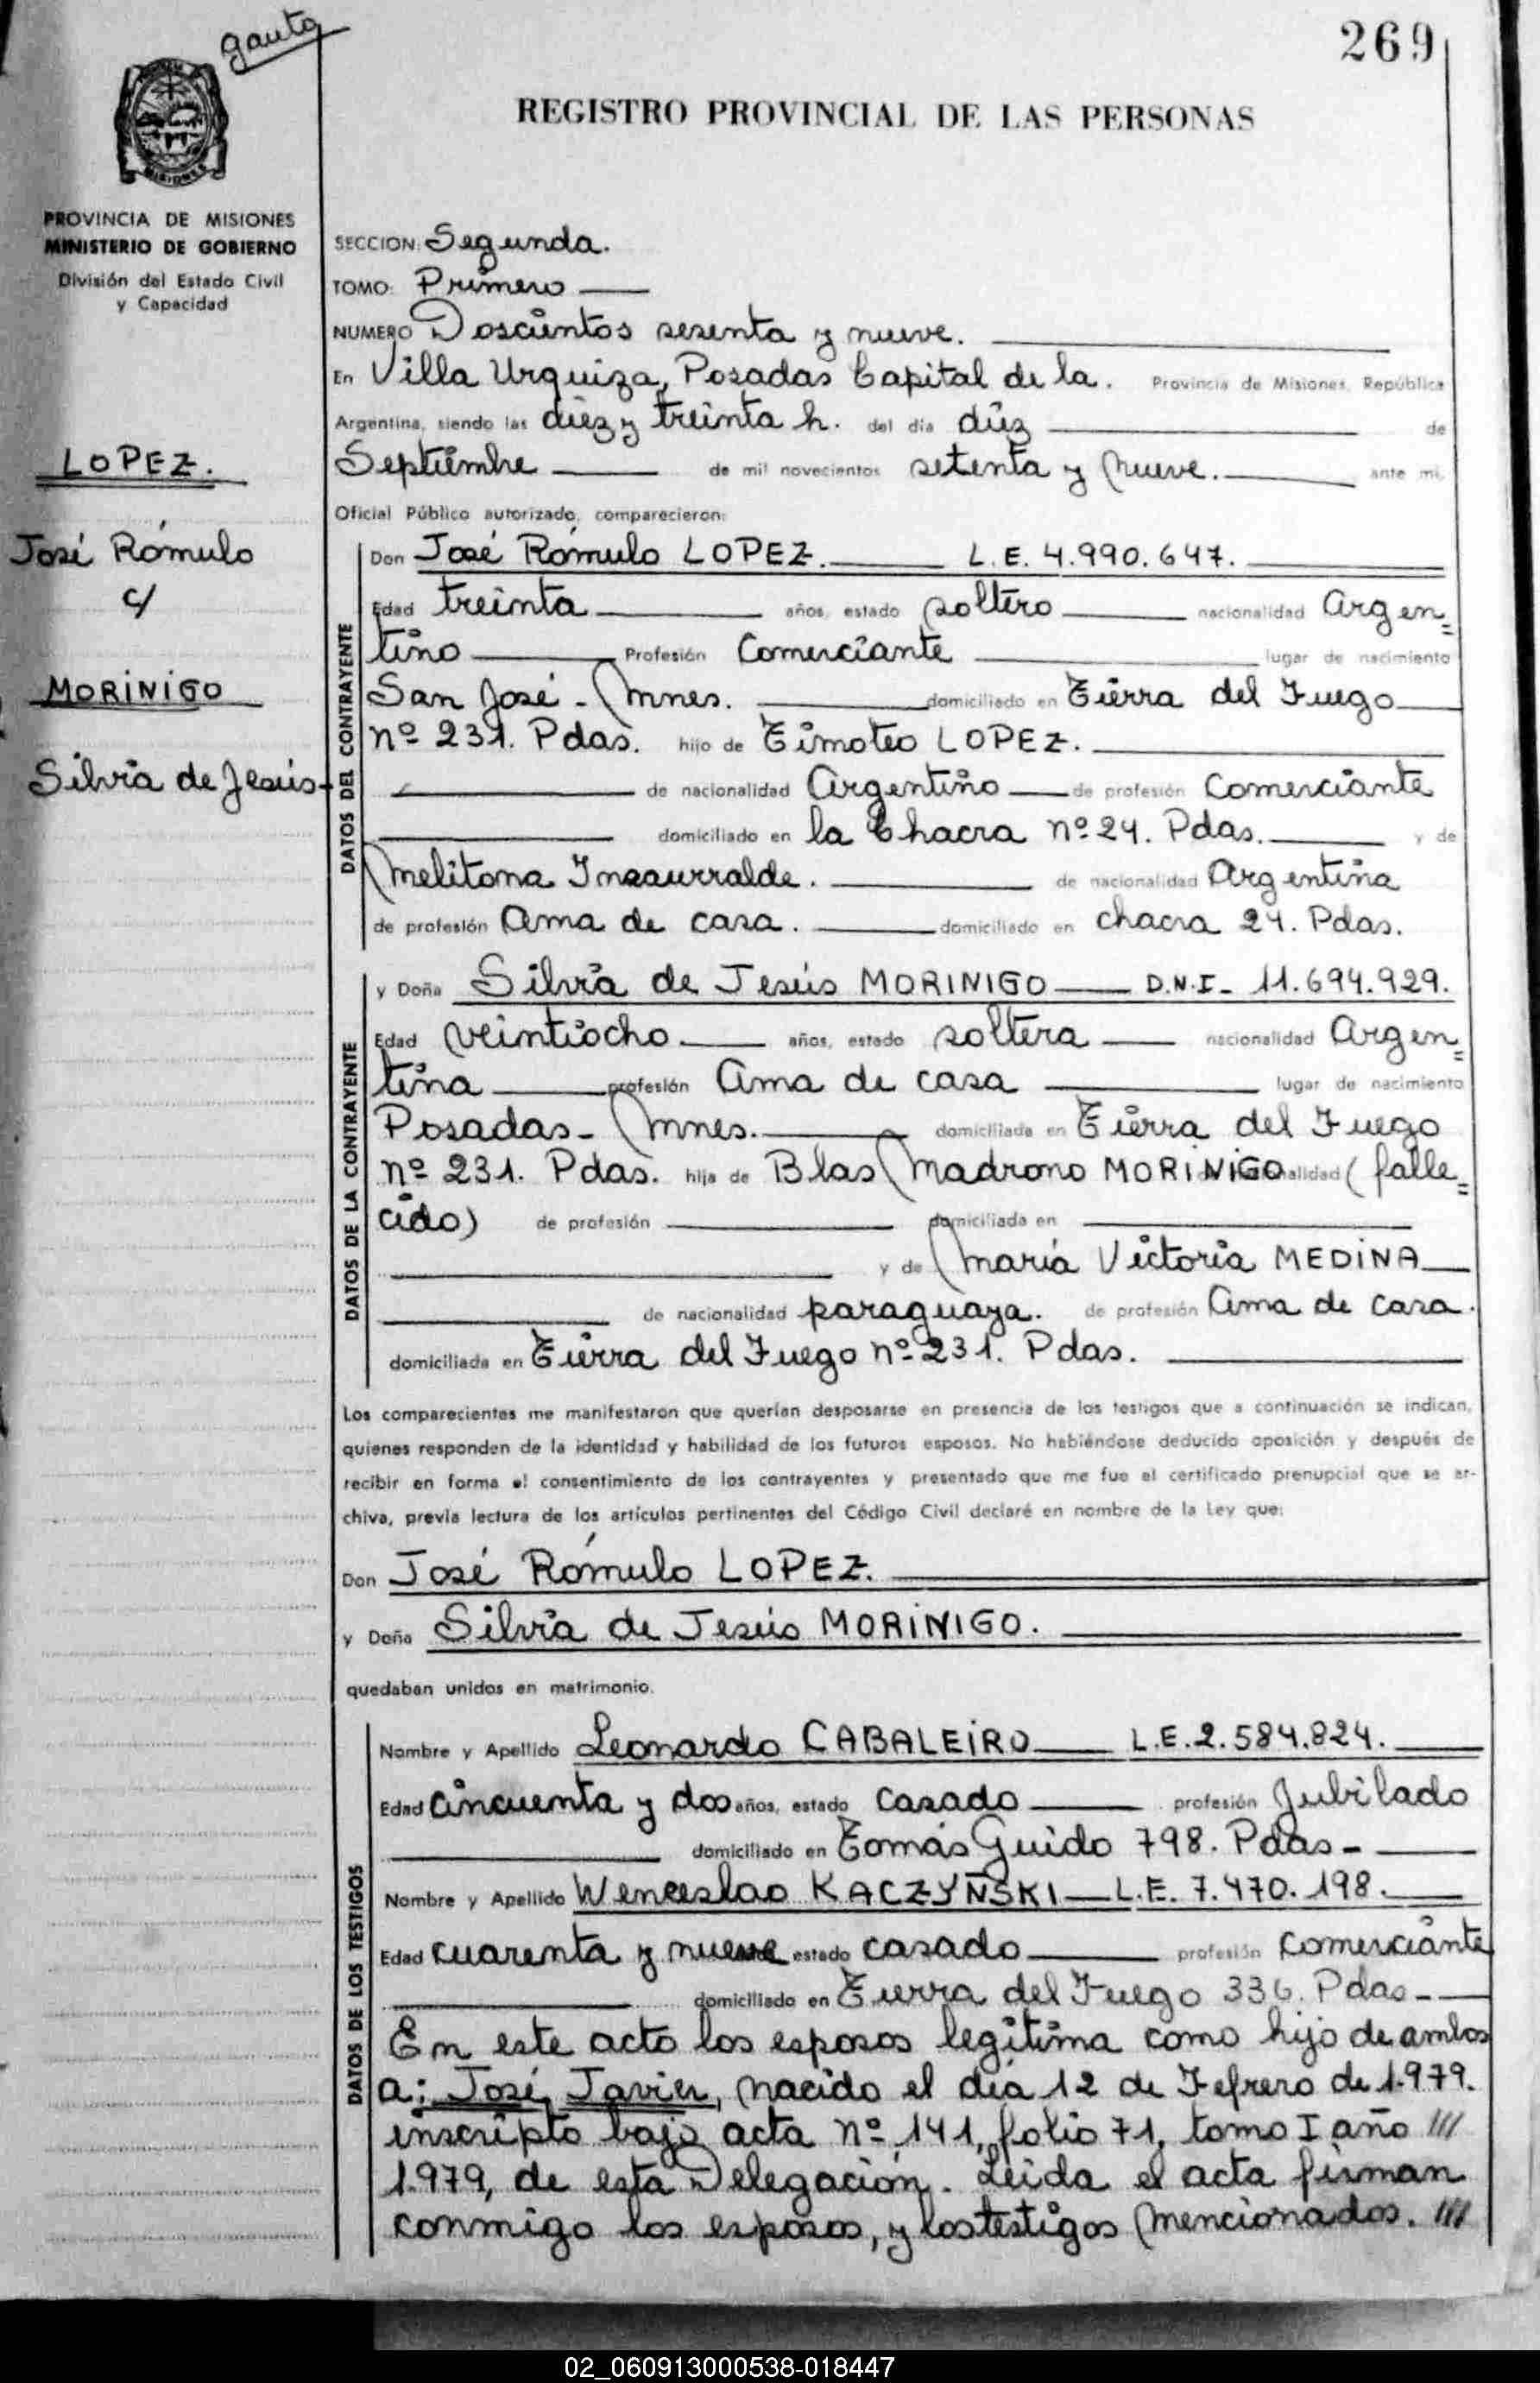 gauto
269
REGISTRO PROVINCIAL DE LAS PERSONAS
MISIONES
PROVINCIA DE MISIONES
MINISTERIO DE GOBIERNO
División del Estado Civil
y Capacidad
LOPEZ.
José Rómulo
c/
MORINIGO
Silvia de Jesús
SECCION: Segunda.
TOMO: Primero
NUMERO Doscientos sesenta y nueve.
En Villa Urquiza, Posadas Capital de la. Provincia de Misiones, República
Argentina, siendo las diez y treinta h. del día diez de
Septiembre de mil novecientos setenta y nueve. ante mi,
Oficial Público autorizado, comparecieron:
DATOS DEL CONTRAYENTE
Don José Rómulo LOPEZ. L.E. 4.990.647.
Edad treinta años, estado soltero nacionalidad Argen=
tino Profesión Comerciante lugar de nacimiento
San José - Mnes. domiciliado en Tierra del Fuego
nº 231. Pdas. hijo de Timoteo LOPEZ.
de nacionalidad Argentino de profesión Comerciante
domiciliado en la Chacra nº 24. Pdas. y de
Melitona Insaurralde. de nacionalidad Argentina
de profesión Ama de casa. domiciliado en chacra 24. Pdas.
DATOS DE LA CONTRAYENTE
y Doña Silvia de Jesús MORINIGO D.N.I- 11.694.929.
Edad veintiocho años, estado soltera nacionalidad Argen=
tina profesión Ama de casa lugar de nacimiento
Posadas - Mnes. domiciliada en Tierra del Fuego
nº 231. Pdas. hija de Blas Madrono MORINIGO (falle=
cido) de profesión domiciliada en
y de María Victoria MEDINA
de nacionalidad paraguaya. de profesión Ama de casa.
domiciliada en Tierra del Fuego nº 231. Pdas.
Los comparecientes me manifestaron que querían desposarse en presencia de los testigos que a continuación se indican,
quienes responden de la identidad y habilidad de los futuros esposos. No habiéndose deducido oposición y después de
recibir en forma el consentimiento de los contrayentes y presentado que me fue el certificado prenupcial que se ar-
chiva, previa lectura de los artículos pertinentes del Código Civil declaré en nombre de la Ley que:
Don José Rómulo LOPEZ.
y Doña Silvia de Jesús MORINIGO.
quedaban unidos en matrimonio.
DATOS DE LOS TESTIGOS
Nombre y Apellido Leonardo CABALEIRO L.E. 2.584.824.
Edad Cincuenta y dos años, estado Casado profesión Jubilado
domiciliado en Tomás Guido 798. Pdas -
Nombre y Apellido Wenceslao KACZYÑSKI L.E. 7.470.198.
Edad cuarenta y nueve estado casado profesión Comerciante
domiciliado en Tierra del Fuego 336. Pdas -
En este acto los esposos legitima como hijo de ambos
a: José Javier, nacido el día 12 de Febrero de 1.979.
inscripto bajo acta nº 141, folio 71, tomo I año ///
1.979, de esta Delegación. Leida el acta firman
conmigo los esposos, y los testigos mencionados. ///
02_060913000538-018447